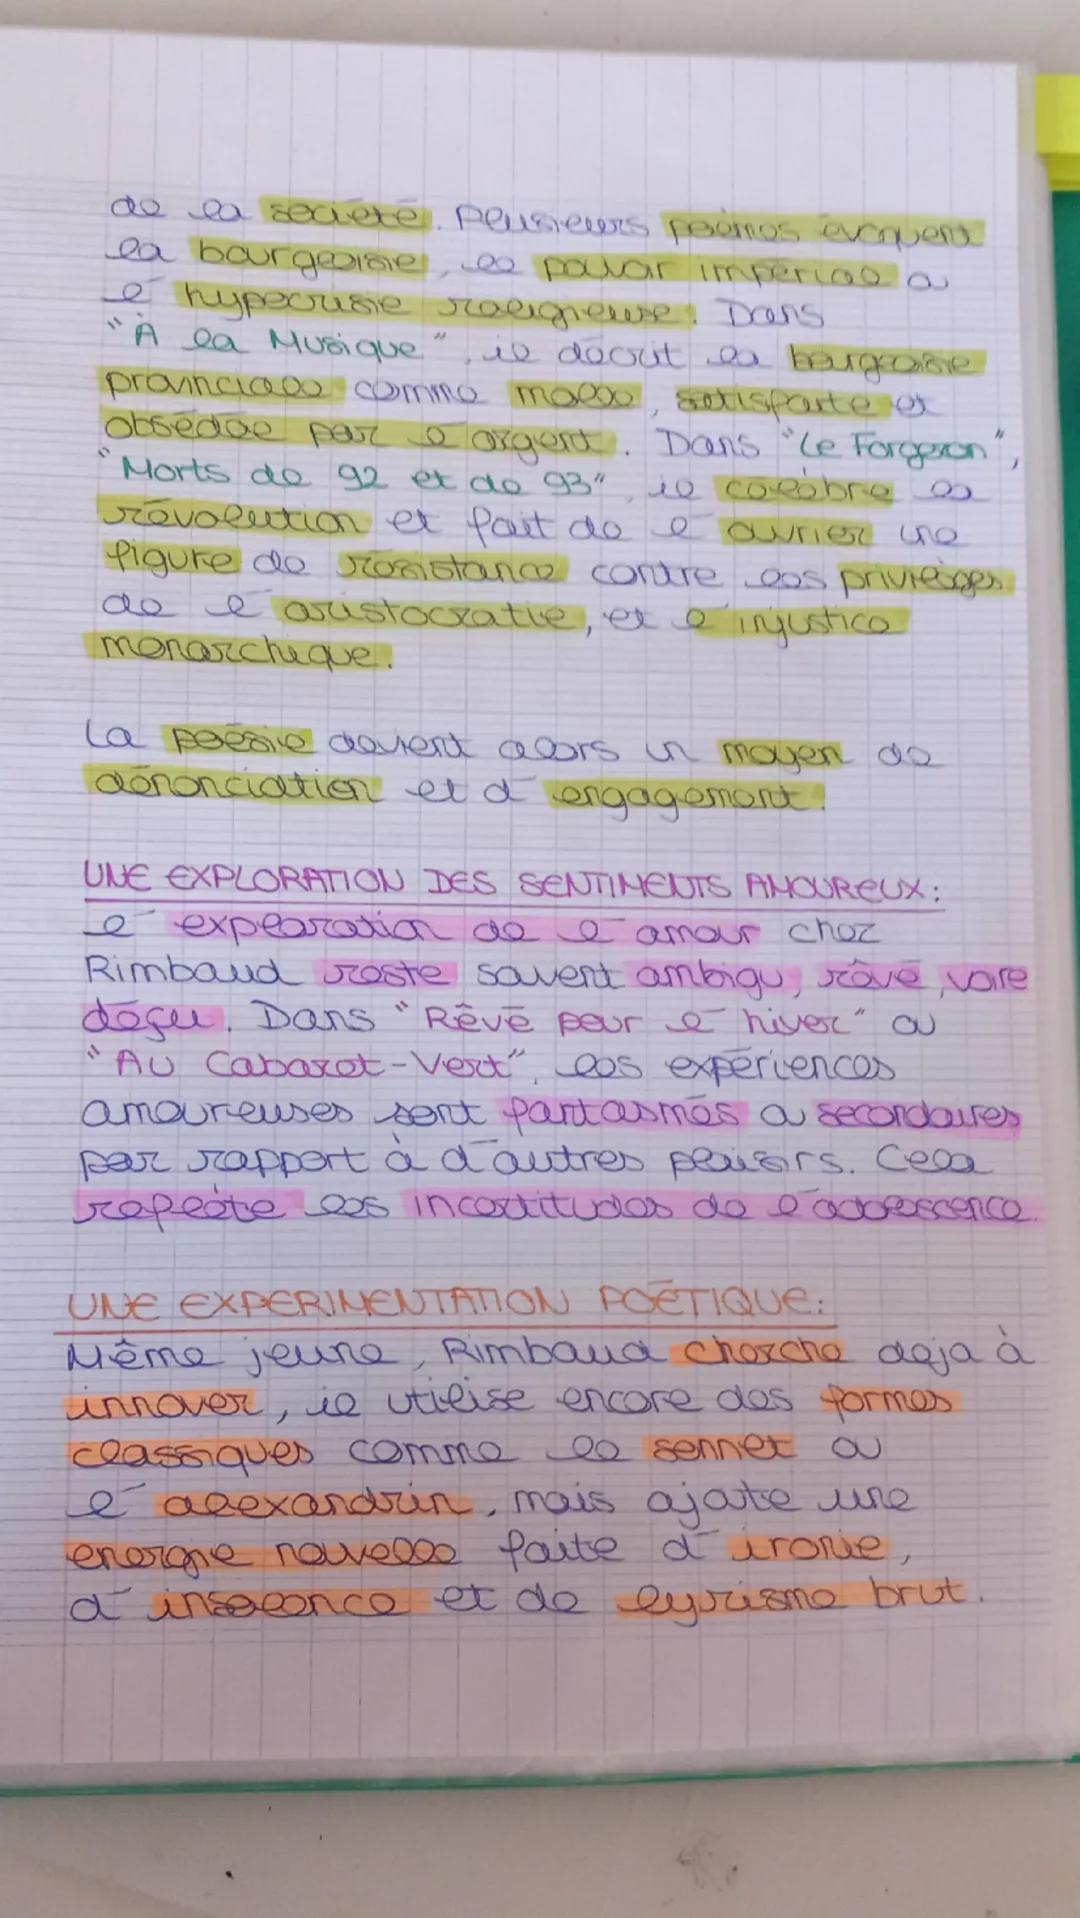 de la société. Plusieurs poèmes évoquent
la bourgeoisie, le pouvoir impérial ou
l'hypocrisie religieuse. Dans
"À la Musique", il décrit la bourgeoisie
provinciale comme molle, satisfaite et
obsédée par l'argent. Dans "Le Forgeron",
"Morts de 92 et de 93", il célèbre la
révolution et fait de l'ouvrier une
figure de résistance contre les privilèges
de l'aristocratie, et l'injustice
monarchique.
La poésie devient alors un moyen de
dénonciation et d'engagement.
UNE EXPLORATION DES SENTIMENTS AMOUREUX:
l'exploration de l'amour chez
Rimbaud reste souvent ambigu, rêvé, voire
déçu. Dans "Rêvé pour l'hiver" ou
"Au Cabaret-Vert", les expériences
amoureuses sont fantasmés ou secondaires
par rapport à d'autres plaisirs. Cela
reflète les incertitudes de l'adolescence.
UNE EXPERIMENTATION POÉTIQUE:
Même jeune, Rimbaud cherche deja à
innover, il utilise encore des formes
classiques comme le sonnet ou
l'alexandrin, mais ajoute une
energie nouvelle faite d'ironie,
d'insolence et de lyrisme brut.